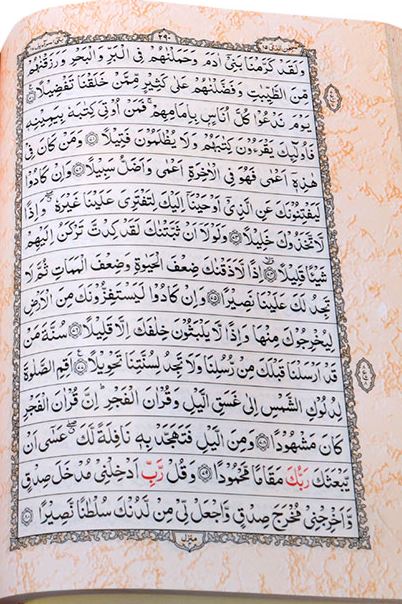 سبحن الذی ١٥
٢٩٠
بنی اسرآءیل ١٧
وَلَقَدْ كَرَّمْنَا بَنِیْۤ اٰدَمَ وَحَمَلْنٰهُمْ فِی الْبَرِّ وَالْبَحْرِ وَرَزَقْنٰهُمْ
مِّنَ الطَّیِّبٰتِ وَفَضَّلْنٰهُمْ عَلٰی كَثِیْرٍ مِّمَّنْ خَلَقْنَا تَفْضِیْلًا
یَوْمَ نَدْعُوْا كُلَّ اُنَاسٍۭ بِاِمَامِهِمْ ۚ فَمَنْ اُوْتِیَ كِتٰبَهٗ بِیَمِیْنِهٖ
فَاُولٰٓئِكَ یَقْرَءُوْنَ كِتٰبَهُمْ وَلَا یُظْلَمُوْنَ فَتِیْلًا وَمَنْ كَانَ فِیْ
هٰذِهٖۤ اَعْمٰی فَهُوَ فِی الْاٰخِرَةِ اَعْمٰی وَاَضَلُّ سَبِیْلًا وَاِنْ كَادُوْا
لَیَفْتِنُوْنَكَ عَنِ الَّذِیْۤ اَوْحَیْنَاۤ اِلَیْكَ لِتَفْتَرِیَ عَلَیْنَا غَیْرَهٗ ۖ وَاِذًا
لَّاتَّخَذُوْكَ خَلِیْلًا وَلَوْلَاۤ اَنْ ثَبَّتْنٰكَ لَقَدْ كِدْتَّ تَرْكَنُ اِلَیْهِمْ
شَیْئًا قَلِیْلًا اِذًا لَّاَذَقْنٰكَ ضِعْفَ الْحَیٰوةِ وَضِعْفَ الْمَمَاتِ ثُمَّ لَا
تَجِدُ لَكَ عَلَیْنَا نَصِیْرًا وَاِنْ كَادُوْا لَیَسْتَفِزُّوْنَكَ مِنَ الْاَرْضِ
لِیُخْرِجُوْكَ مِنْهَا وَاِذًا لَّا یَلْبَثُوْنَ خِلٰفَكَ اِلَّا قَلِیْلًا سُنَّةَ مَنْ
قَدْ اَرْسَلْنَا قَبْلَكَ مِنْ رُّسُلِنَا وَلَا تَجِدُ لِسُنَّتِنَا تَحْوِیْلًا اَقِمِ الصَّلٰوةَ
لِدُلُوْكِ الشَّمْسِ اِلٰی غَسَقِ الَّیْلِ وَقُرْاٰنَ الْفَجْرِ ؕ اِنَّ قُرْاٰنَ الْفَجْرِ
كَانَ مَشْهُوْدًا وَمِنَ الَّیْلِ فَتَهَجَّدْ بِهٖ نَافِلَةً لَّكَ ۖ عَسٰۤی اَنْ
یَّبْعَثَكَ رَبُّكَ مَقَامًا مَّحْمُوْدًا وَقُلْ رَّبِّ اَدْخِلْنِیْ مُدْخَلَ صِدْقٍ
وَّاَخْرِجْنِیْ مُخْرَجَ صِدْقٍ وَّاجْعَلْ لِّیْ مِنْ لَّدُنْكَ سُلْطٰنًا نَّصِیْرًا
منزل